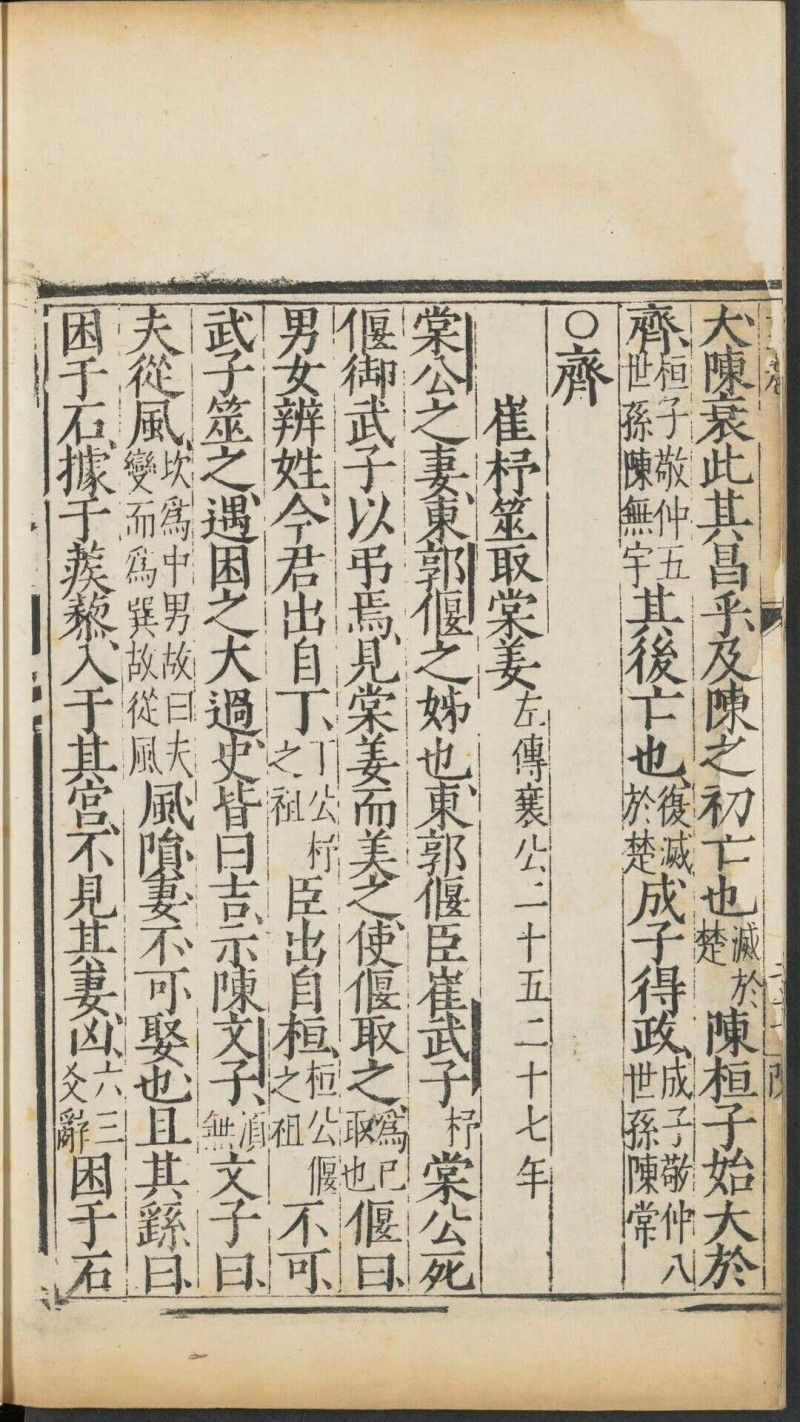 大、陳衰、此其昌乎、及陳之初亡也滅於楚陳桓子始大於
齊、桓子敬仲五世孫陳無宇其後亡也、復滅於楚成子得政、成子敬仲八世孫陳常
○齊
崔杼筮取棠姜左傳襄公二十五二十七年
棠公之妻、東郭偃之姊也、東郭偃臣崔武子杼棠公死
偃御武子以弔焉、見棠姜而美之、使偃取之、為己取也偃曰、
男女辨姓、今君出自丁、丁公杼之祖臣出自桓、桓公偃之祖不可、
武子筮之、遇困之大過、史皆曰吉、示陳文子、須無文子曰、
夫從風、坎爲中男故曰夫變而爲巽故從風風隕、妻不可娶也、且其繇曰、
困于石、據于蒺藜、入于其宮、不見其妻、凶、六三爻辭困于石